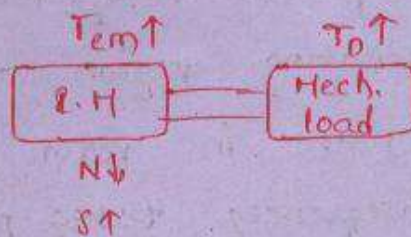 Tem↑ TD↑
I.M Mech. load
N↓
S↑